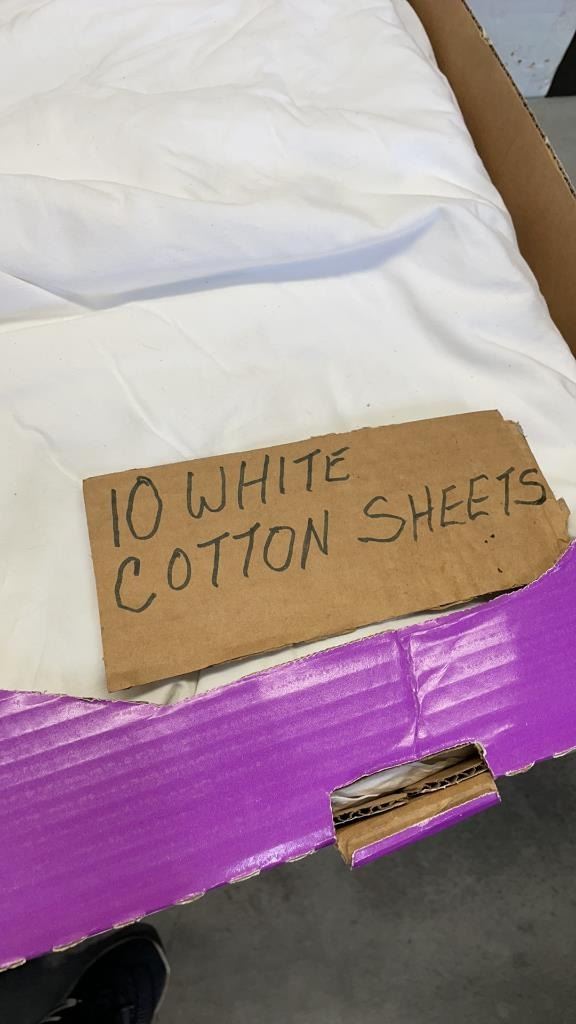 10 WHITE
COTTON SHEETS